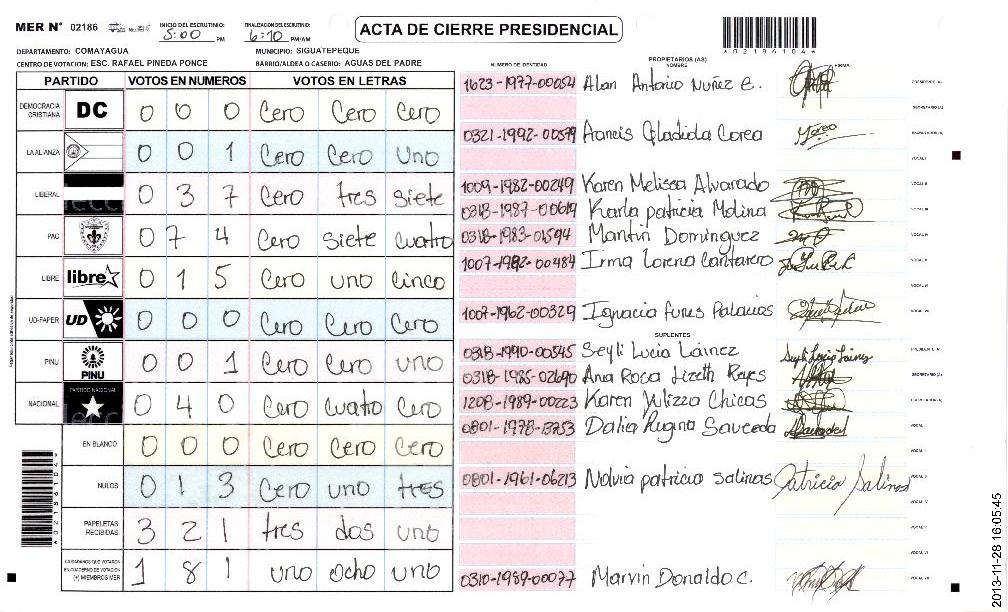 MER N° 02186
INICIO DEL ESCRUTINIO: 5:00 PM
FINALIZACION DEL ESCRUTINIO: 6:10 PM/AM
ACTA DE CIERRE PRESIDENCIAL
DEPARTAMENTO: COMAYAGUA
MUNICIPIO: SIGUATEPEQUE
CENTRO DE VOTACION: ESC. RAFAEL PINEDA PONCE
BARRIO/ALDEA O CASERIO: AGUAS DEL PADRE
PARTIDO VOTOS EN NUMEROS VOTOS EN LETRAS
DEMOCRACIA CRISTIANA DC 0 0 0 Cero Cero Cero
LA ALIANZA 0 0 1 Cero Cero uno
LIBERAL 0 3 7 Cero tres siete
PAC 0 7 4 Cero siete cuatro
LIBRE libre 0 1 5 Cero uno cinco
UD-FAPER UD 0 0 0 Cero Cero Cero
PINU PINU 0 0 1 Cero Cero uno
NACIONAL PARTIDO NACIONAL 0 4 0 Cero cuatro Cero
EN BLANCO 0 0 0 Cero Cero Cero
NULOS 0 1 3 Cero uno tres
PAPELETAS RECIBIDAS 3 2 1 tres dos uno
CIUDADANOS QUE VOTARON EN CUADERNO DE VOTACION (+) MIEMBROS MER 1 8 1 uno ocho uno
NUMERO DE IDENTIDAD
PROPIETARIOS (AS)
NOMBRE
FIRMA
1623-1977-00054 Alan Antonio Nuñez e. PRESIDENTE (A)
SECRETARIO (A)
0321-1992-00579 Cladida Corea ESCRUTADOR (A)
VOCAL I
1009-1982-00249 Karen Melissa Alvarado VOCAL II
0318-1987-00619 Karla patricia Molina VOCAL III
0318-1983-01594 Mantin Dominguez VOCAL IV
1007-1982-00484 Irma Lorena Cantarero VOCAL V
VOCAL VI
1007-1962-00329 Ignacia funes Palacios VOCAL VII
SUPLENTES
0318-1990-00545 Seyli Lucia Láinez Seyli Lucia Láinez PRESIDENTE (A)
0318-1985-02690 Ana Rosa Lizeth Reyes SECRETARIO (A)
1208-1989-00223 Karen Yulizza Chicas ESCRUTADOR (A)
0801-1978-13753 Dalia Regina Sauceda VOCAL I
VOCAL II
0801-1961-06213 Nolvia patricia salinas Patricia Salinas
VOCAL V
VOCAL VI
0310-1989-00077 Marvin Donaldo C. VOCAL VII
2013-11-28 16:05:45